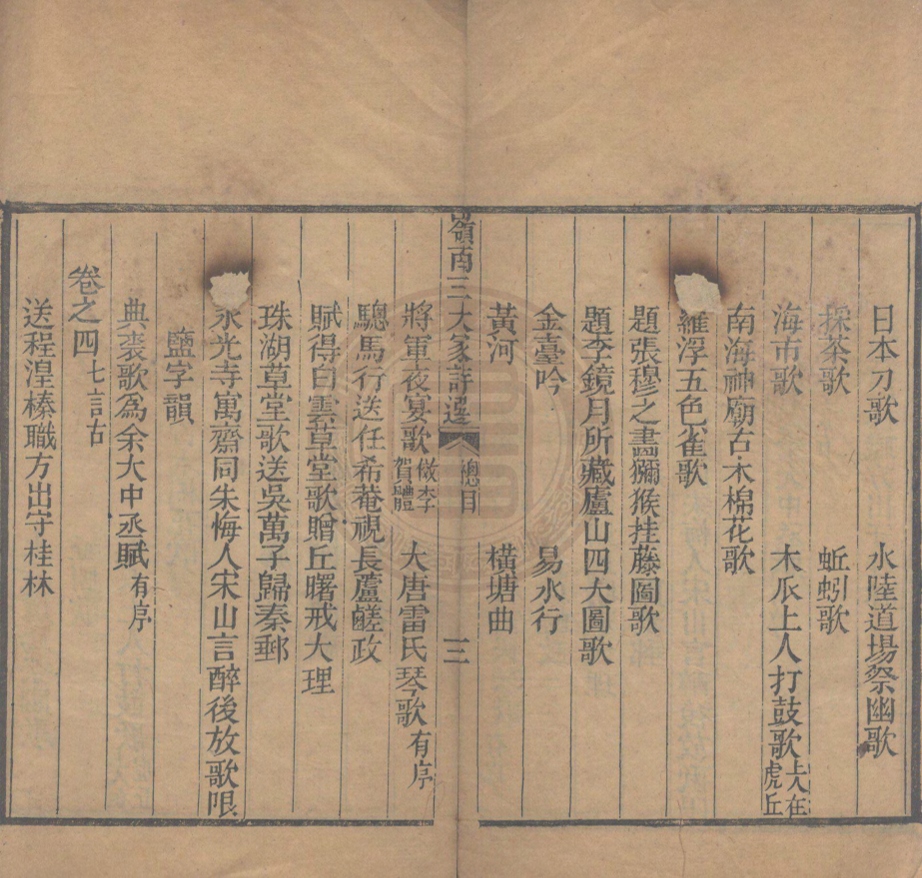 日本刀歌　水陸道場祭幽歌
採茶歌　蚯蚓歌
海市歌　木𠂢上人打鼓歌上人在虎丘
南海神廟古木棉花歌
羅浮五色雀歌
題張穆之畫獼猴挂藤圖歌
題李鏡月所藏廬山四大圖歌
金臺吟　易水行
黃河　橫塘曲
嶺南三大家詩選　總目　三
將軍夜宴歌倣李賀體　大唐雷氏琴歌有序
驄馬行送任希菴視長蘆鹺政
賦得白雲草堂歌贈丘曙戒大理
珠湖草堂歌送吳萬子歸秦郵
永光寺寓齋同朱悔人宋山言醉後放歌限
鹽字韻
典裘歌為余大中丞賦有序
卷之四七言古
送程湟榛職方出守桂林